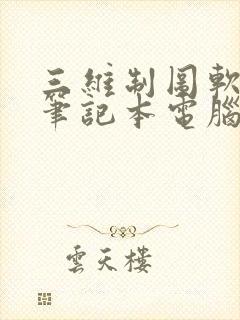 三維制圖軟
筆記本電腦
雲天樓